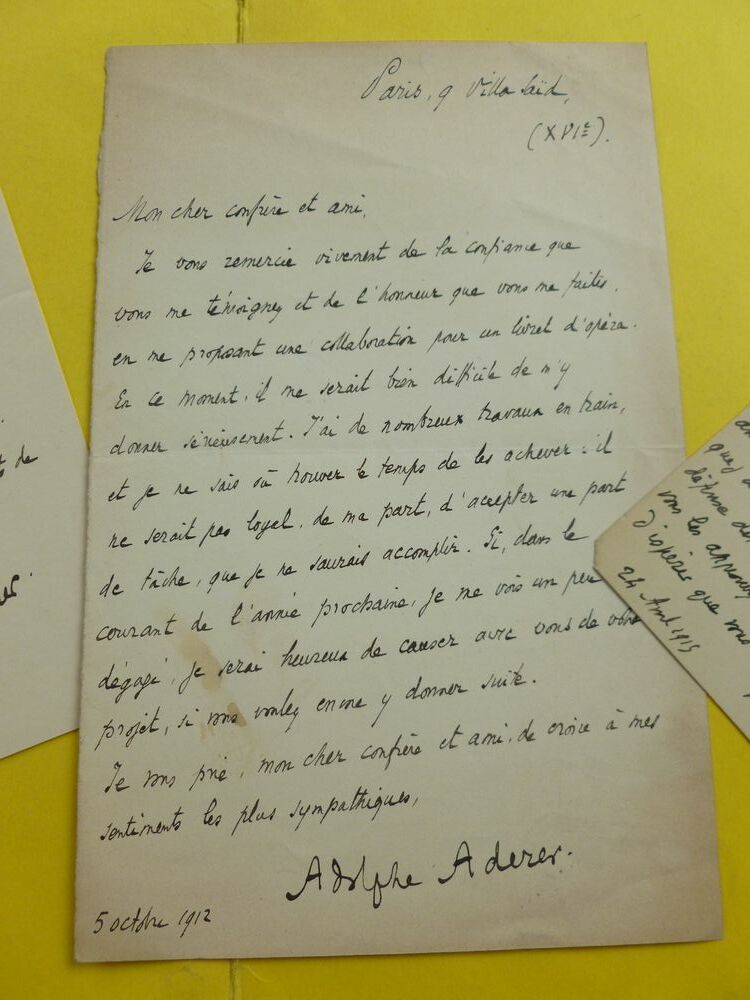 Paris, 9 Villa Saïd,
(XVIe).
Mon cher confrère et ami,
Je vous remercie vivement de la confiance que
vous me témoignez et de l'honneur que vous me faites,
en me proposant une collaboration pour un livret d'opéra.
En ce moment, il me serait bien difficile de m'y
donner sérieusement. J'ai de nombreux travaux en train,
et je ne sais où trouver le temps de les achever : il
ne serait pas loyal, de ma part, d'accepter une part
de tâche, que je ne saurais accomplir. Si, dans le
courant de l'année prochaine, je me vois un peu
dégagé, je serai heureux de causer avec vous de votre
projet, si vous voulez encore y donner suite.
Je vous prie, mon cher confrère et ami, de croire à mes
sentiments les plus sympathiques,
Adolphe Aderer.
5 octobre 1912
de
er.
défense de
vous les
d'espérer que vous
24 Avril 1915